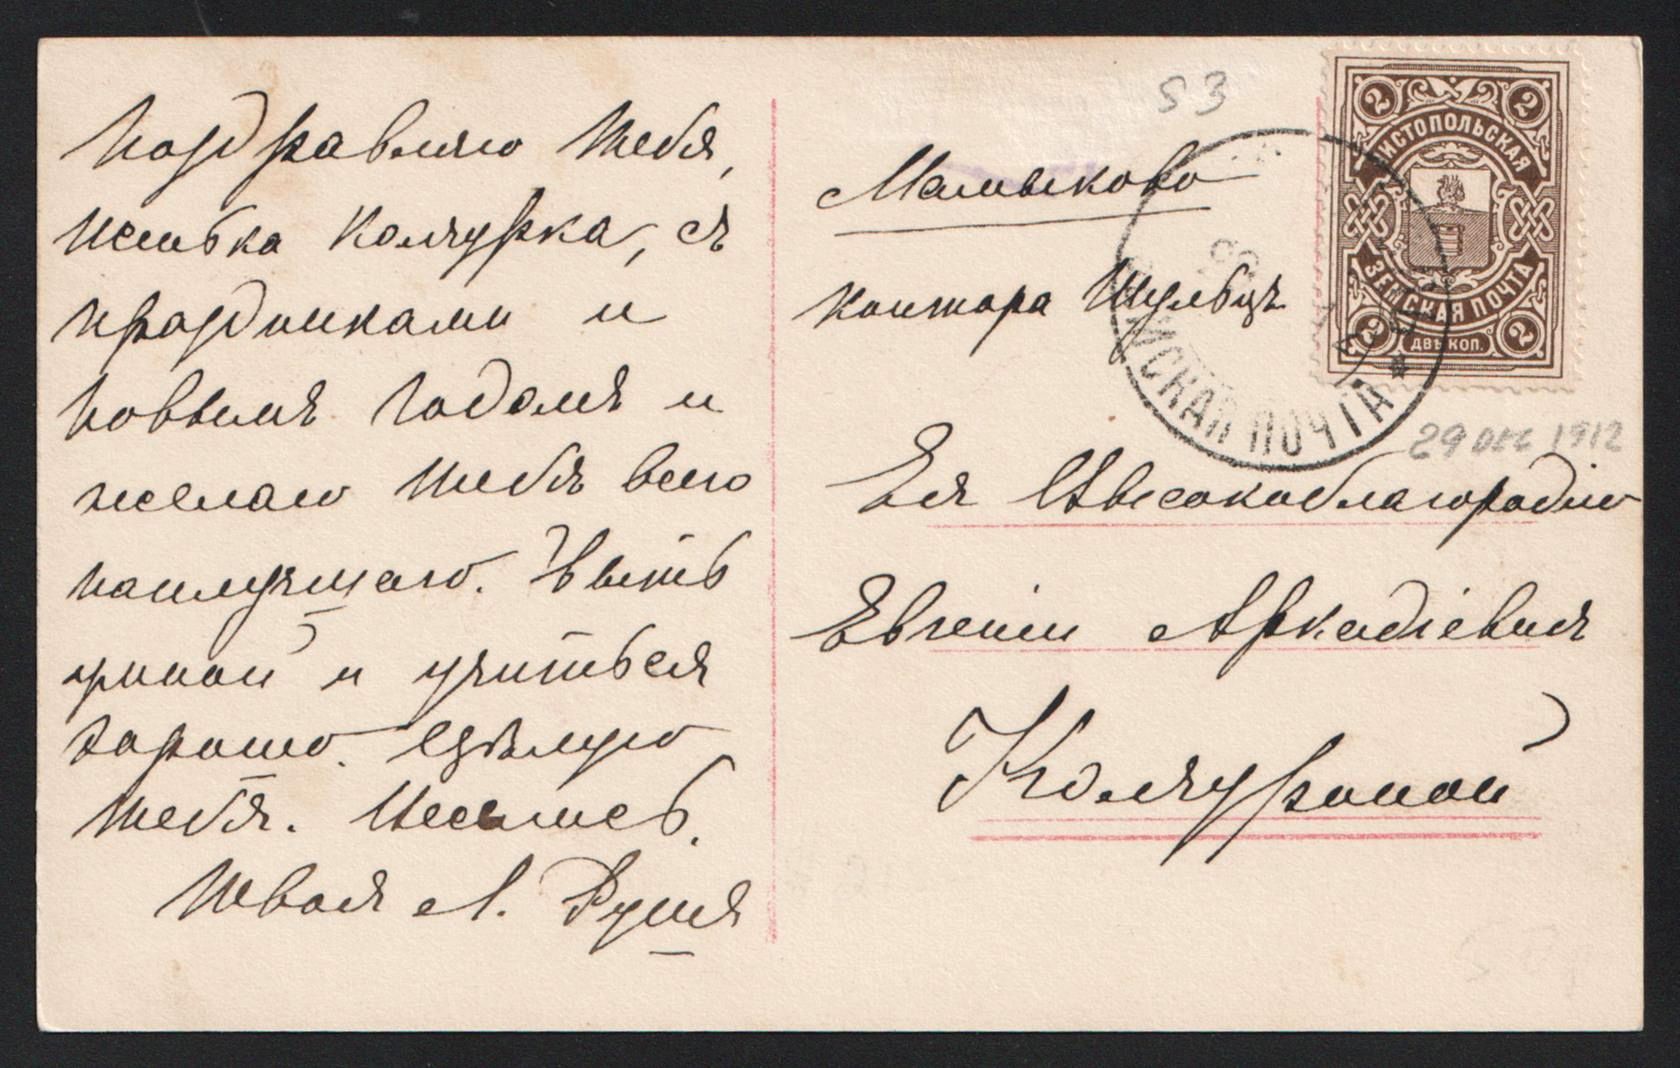 Поздравляю тебя,
милка Колчурка, съ
праздниками и
новымъ годомъ и
желаю тебѣ всего
наилучшаго. Быть
умной и учиться
хорошо. Цѣлую
тебя. Пиши
Твоя А. Душа
53
Мамыково
контора Шульцъ
Ея Высокоблагородію
Евгеніи Аркадіевнѣ
Колчуриной
29 DEC 1912
2 2
ЧИСТОПОЛЬСКАЯ
ЗЕМСКАЯ ПОЧТА
2 ДВѢ КОП. 2
ЗЕМСКАЯ ПОЧТА *